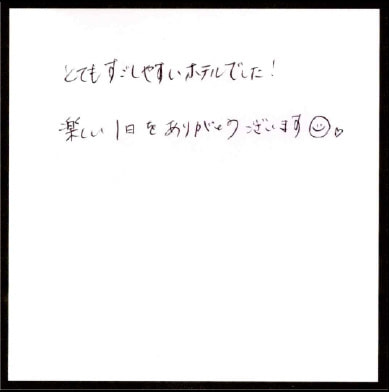 とてもすごしやすいホテルでした!
楽しい1日をありがとうございます☺♡